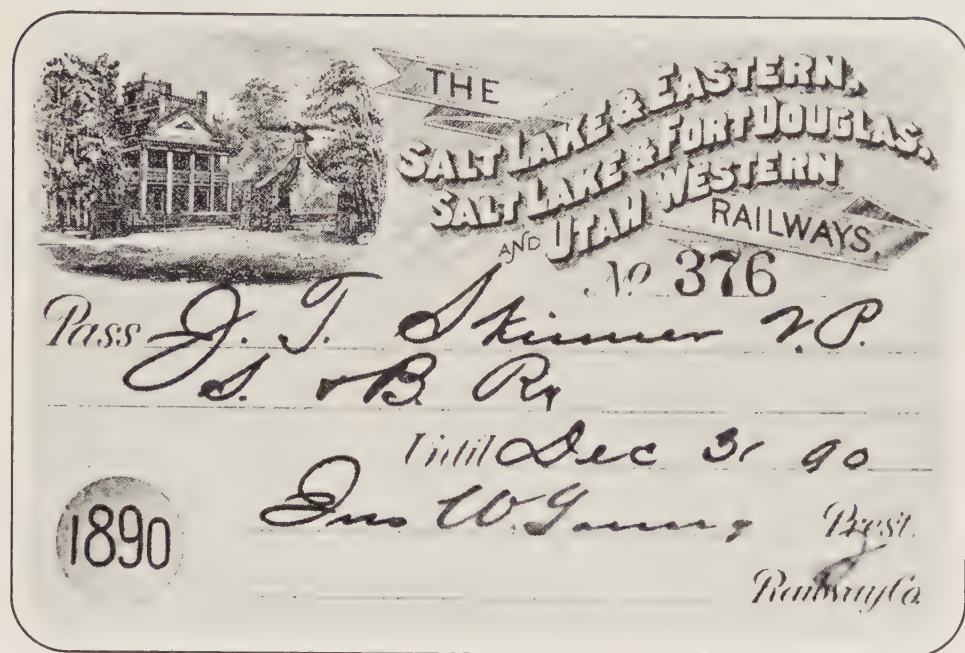 THE
SALT LAKE & EASTERN,
SALT LAKE & FORT DOUGLAS,
AND UTAH WESTERN
RAILWAYS
No 376
Pass J. T. Skinner V.P.
S. & B. Ry
Until Dec 31 90
Jno W. Young Prest.
1890
Railway Co.